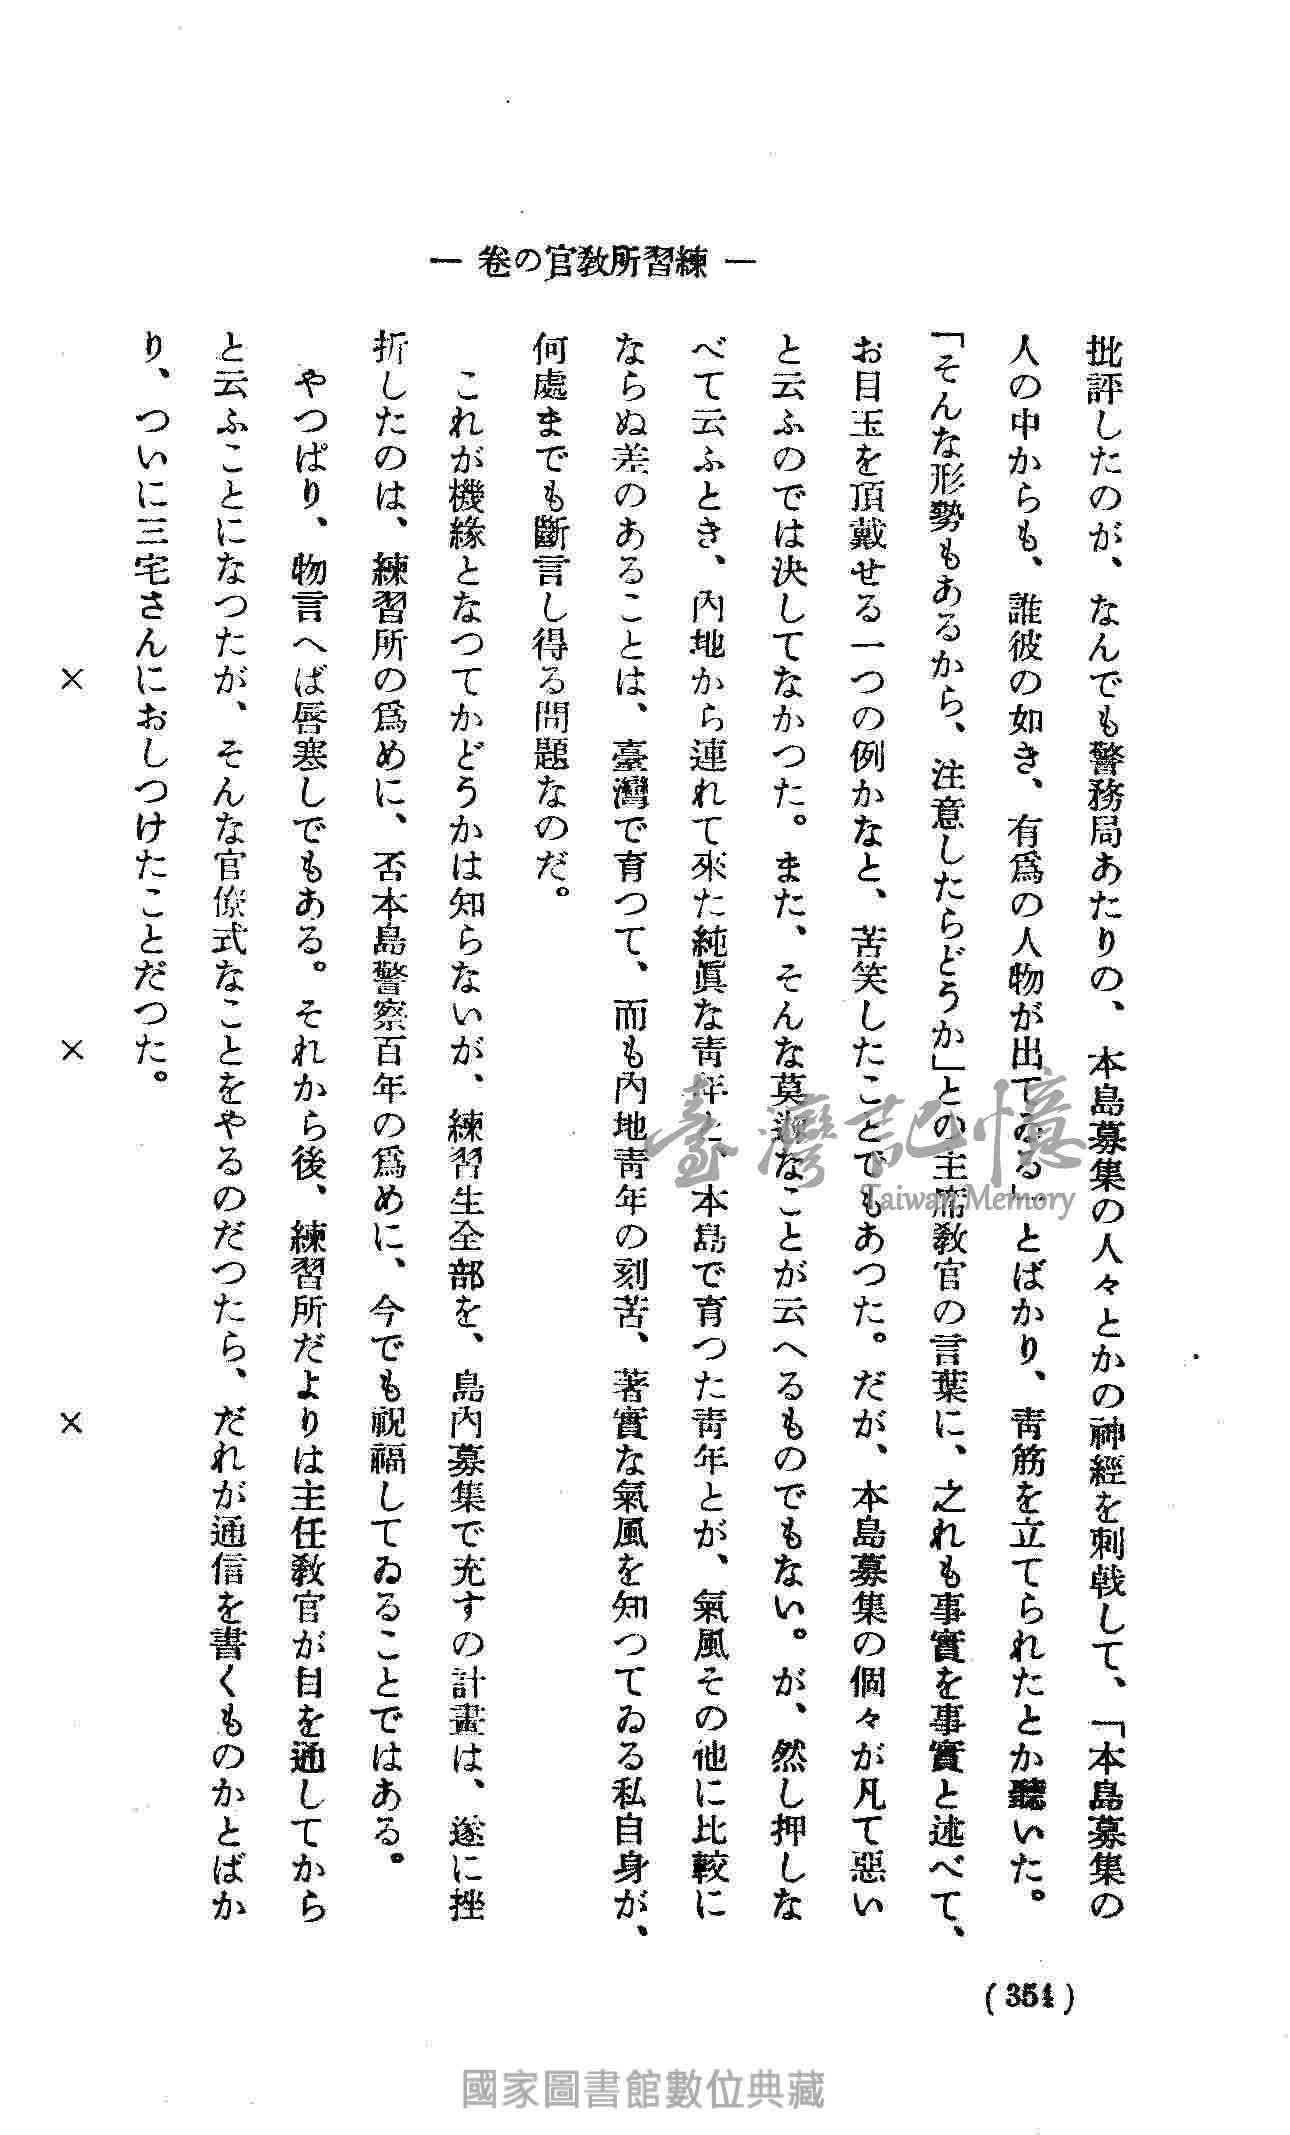 ― 練習所教官の卷 ―
批評したのが、なんでも警務局あたりの、本島募集の人々とかの神經を刺戟して、「本島募集の
人の中からも、誰彼の如き、有爲の人物が出てゐる」とばかり、靑筋を立てられたとか聽いた。
「そんな形勢もあるから、注意したらどうか」との主席教官の言葉に、之れも事實を事實と述べて、
お目玉を頂戴せる一つの例かなと、苦笑したことでもあつた。だが、本島募集の個々が凡て惡い
と云ふのでは決してなかつた。また、そんな莫迦なことが云へるものでもない。が、然し押しな
べて云ふとき、內地から連れて來た純眞な靑年と、本島で育つた靑年とが、氣風その他に比較に
ならぬ差のあることは、臺灣で育つて、而も內地靑年の刻苦、著實な氣風を知つてゐる私自身が、
何處までも斷言し得る問題なのだ。
これが機緣となつてかどうかは知らないが、練習生全部を、島內募集で充すの計畫は、遂に挫
折したのは、練習所の爲めに、否本島警察百年の爲めに、今でも祝福してゐることではある。
やつぱり、物言へば唇寒しでもある。それから後、練習所だよりは主任教官が目を通してから
と云ふことになつたが、そんな官僚式なことをやるのだつたら、だれが通信を書くものかとばか
り、ついに三宅さんにおしつけたことだつた。
× × ×
(354)
臺灣記憶
Taiwan Memory
國家圖書館數位典藏